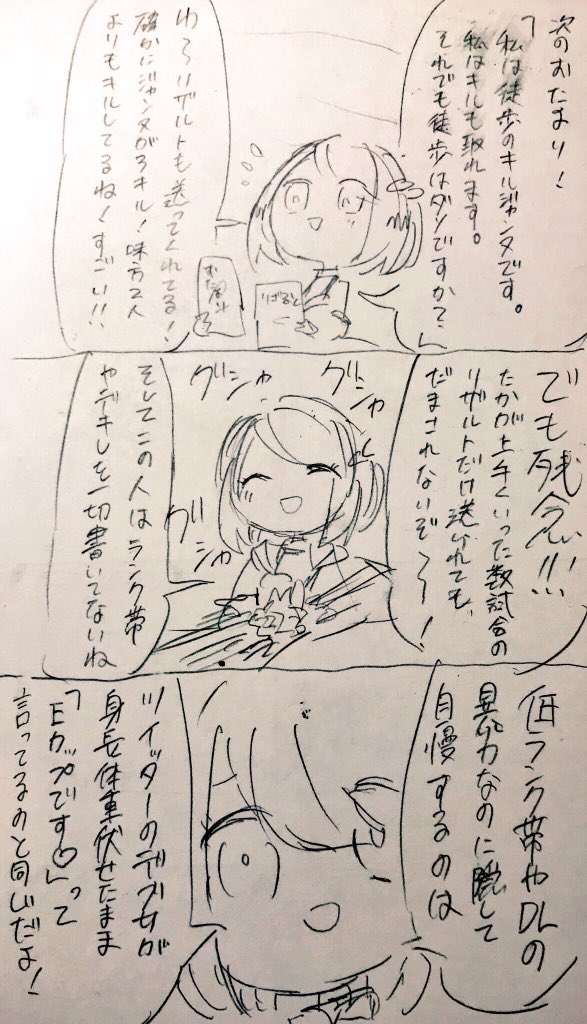 次のおたより!
「私は徒歩のキルジャンヌです。
私はキルも取れます。
それでも徒歩はダメですか?」
わ〜リザルトも送ってくれてる!
確かにジャンヌが3キル!味方2人
よりもキルしてるね!すごい!!
りざると
でも残念!!
たかが上手くいった数試合の
リザルトだけ送られても、
だまされないぞ〜!
グシャ
グシャ
グシャ
そしてこの人はランク帯
やデキレを一切書いてないね
低ランク帯やDLの
異常なのに隠して
自慢するのは
ツイッターのデブ女が
身長体重伏せたまま
「Eカップです♡」って
言ってるのと同じだよ!